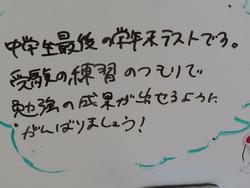 中学生最後の学年末テストです。
受験の練習のつもりで
勉強の成果が出せるように
がんばりましょう!